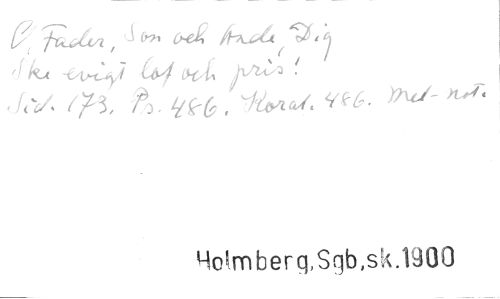 O, Fader, Son och Ande, Dig
Ske evigt lof och pris!
Sid. 173. Ps. 486. Koral. 486. Mel-not.
Holmberg,Sgb,sk.1900